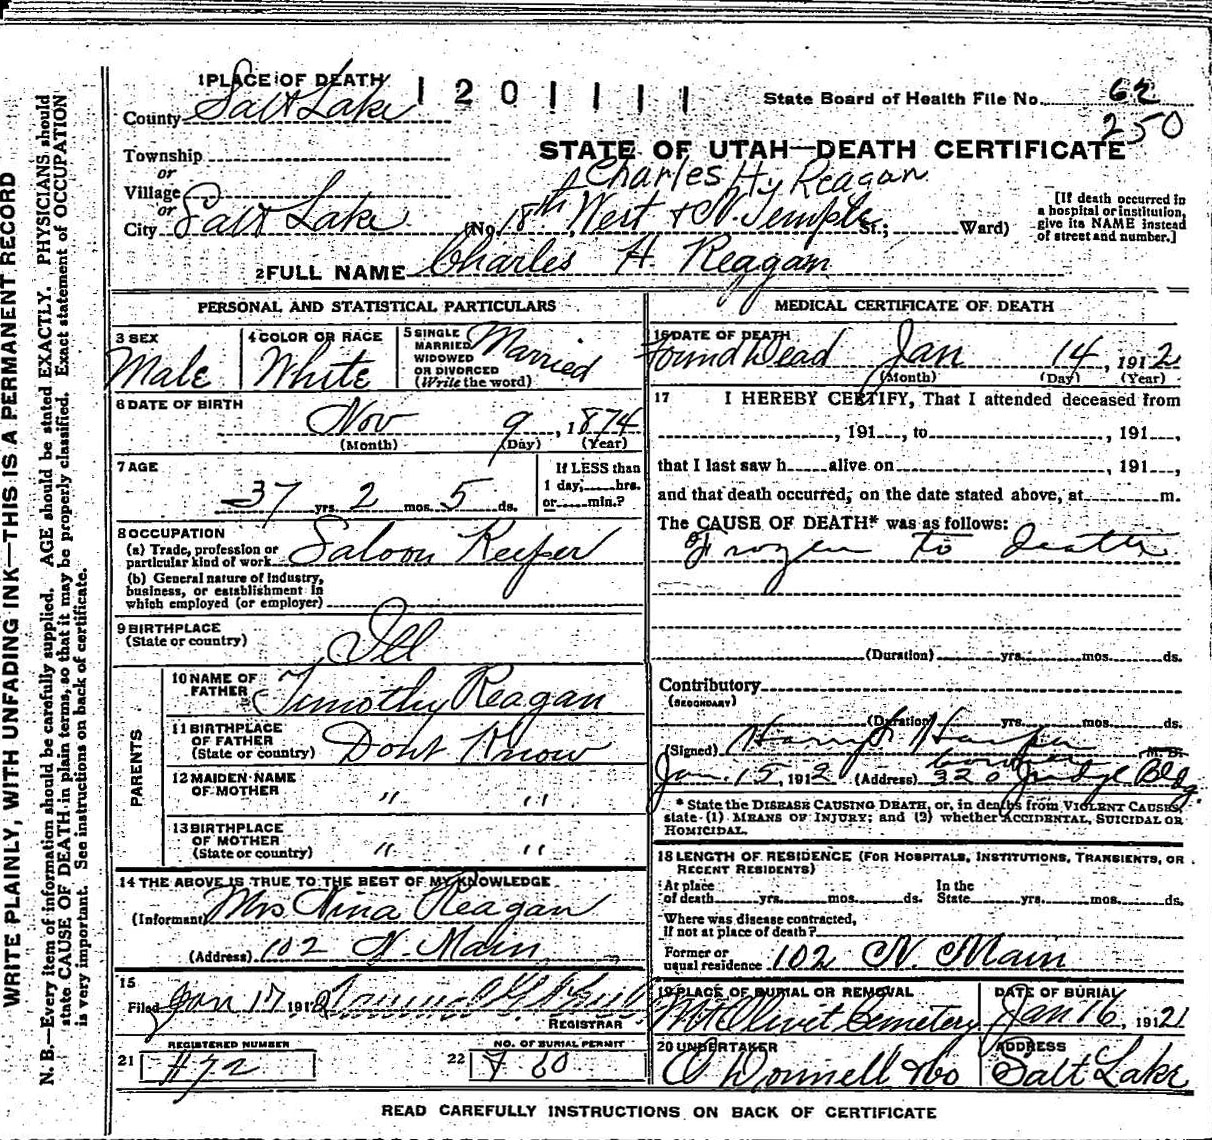 WRITE PLAINLY, WITH UNFADING INK—THIS IS A PERMANENT RECORD
N. B.—Every item of information should be carefully supplied. AGE should be stated EXACTLY. PHYSICIANS should
state CAUSE OF DEATH in plain terms, so that it may be properly classified. Exact statement of OCCUPATION
is very important. See instructions on back of certificate.
1 PLACE OF DEATH
1201111
State Board of Health File No. 62
250
County Salt Lake
STATE OF UTAH—DEATH CERTIFICATE
Township
or
Village
or
Charles Hy Reagan
City Salt Lake (No. 18th West & N. Temple St.; Ward)
[If death occurred in
a hospital or institution,
give its NAME instead
of street and number.]
2 FULL NAME Charles H. Reagan
PERSONAL AND STATISTICAL PARTICULARS
3 SEX
Male
4 COLOR OR RACE
White
5 SINGLE
MARRIED
WIDOWED
OR DIVORCED
(Write the word)
Married
6 DATE OF BIRTH
Nov 9, 1874
(Month) (Day) (Year)
7 AGE
37 yrs. 2 mos. 5 ds.
If LESS than
1 day, hrs.
or min.?
8 OCCUPATION
(a) Trade, profession or
particular kind of work Saloon Keeper
(b) General nature of industry,
business, or establishment in
which employed (or employer)
9 BIRTHPLACE
(State or country) Ill
PARENTS
10 NAME OF
FATHER Timothy Reagan
11 BIRTHPLACE
OF FATHER
(State or country) Dont Know
12 MAIDEN NAME
OF MOTHER " "
13 BIRTHPLACE
OF MOTHER
(State or country) " "
14 THE ABOVE IS TRUE TO THE BEST OF MY KNOWLEDGE
(Informant) Mrs Nina Reagan
(Address) 102 N. Main
15
Filed Jan 17 1912
REGISTRAR
REGISTERED NUMBER
21 #72
NO. OF BURIAL PERMIT
22 F 60
MEDICAL CERTIFICATE OF DEATH
16 DATE OF DEATH
Found Dead Jan 14, 1912
(Month) (Day) (Year)
17 I HEREBY CERTIFY, That I attended deceased from
, 191 , to , 191 ,
that I last saw h alive on , 191 ,
and that death occurred, on the date stated above, at m.
The CAUSE OF DEATH* was as follows:
Frozen to death
(Duration) yrs. mos. ds.
Contributory
(SECONDARY)
(Duration) yrs. mos. ds.
(Signed) Harry Harper M. D.
Coroner
Jan. 15, 1912 (Address) 320 Judge Bldg.
* State the DISEASE CAUSING DEATH, or, in deaths from VIOLENT CAUSES,
state (1) MEANS OF INJURY; and (2) whether ACCIDENTAL, SUICIDAL OR
HOMICIDAL.
18 LENGTH OF RESIDENCE (FOR HOSPITALS, INSTITUTIONS, TRANSIENTS, OR
RECENT RESIDENTS)
At place
of death yrs. mos. ds.
In the
State yrs. mos. ds.
Where was disease contracted,
If not at place of death?
Former or
usual residence 102 N. Main
19 PLACE OF BURIAL OR REMOVAL
Mt Olivet Cemetery
DATE OF BURIAL
Jan 16, 1912
20 UNDERTAKER
O'Donnell & Co
ADDRESS
Salt Lake
READ CAREFULLY INSTRUCTIONS ON BACK OF CERTIFICATE